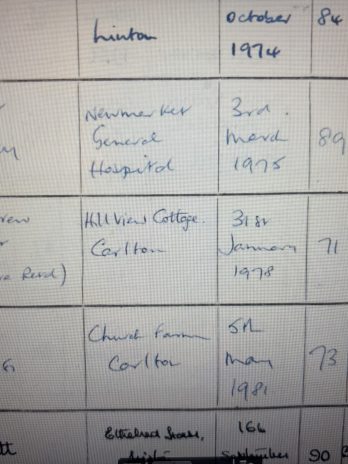 Linton
October
1974
84
Newmarket
General
Hospital
3rd.
March
1975
89
Hill View Cottage.
Carlton
31st
January
1978
71
Rerd)
Church Farm
Carlton
5th
May
1981
73
16th
September
90